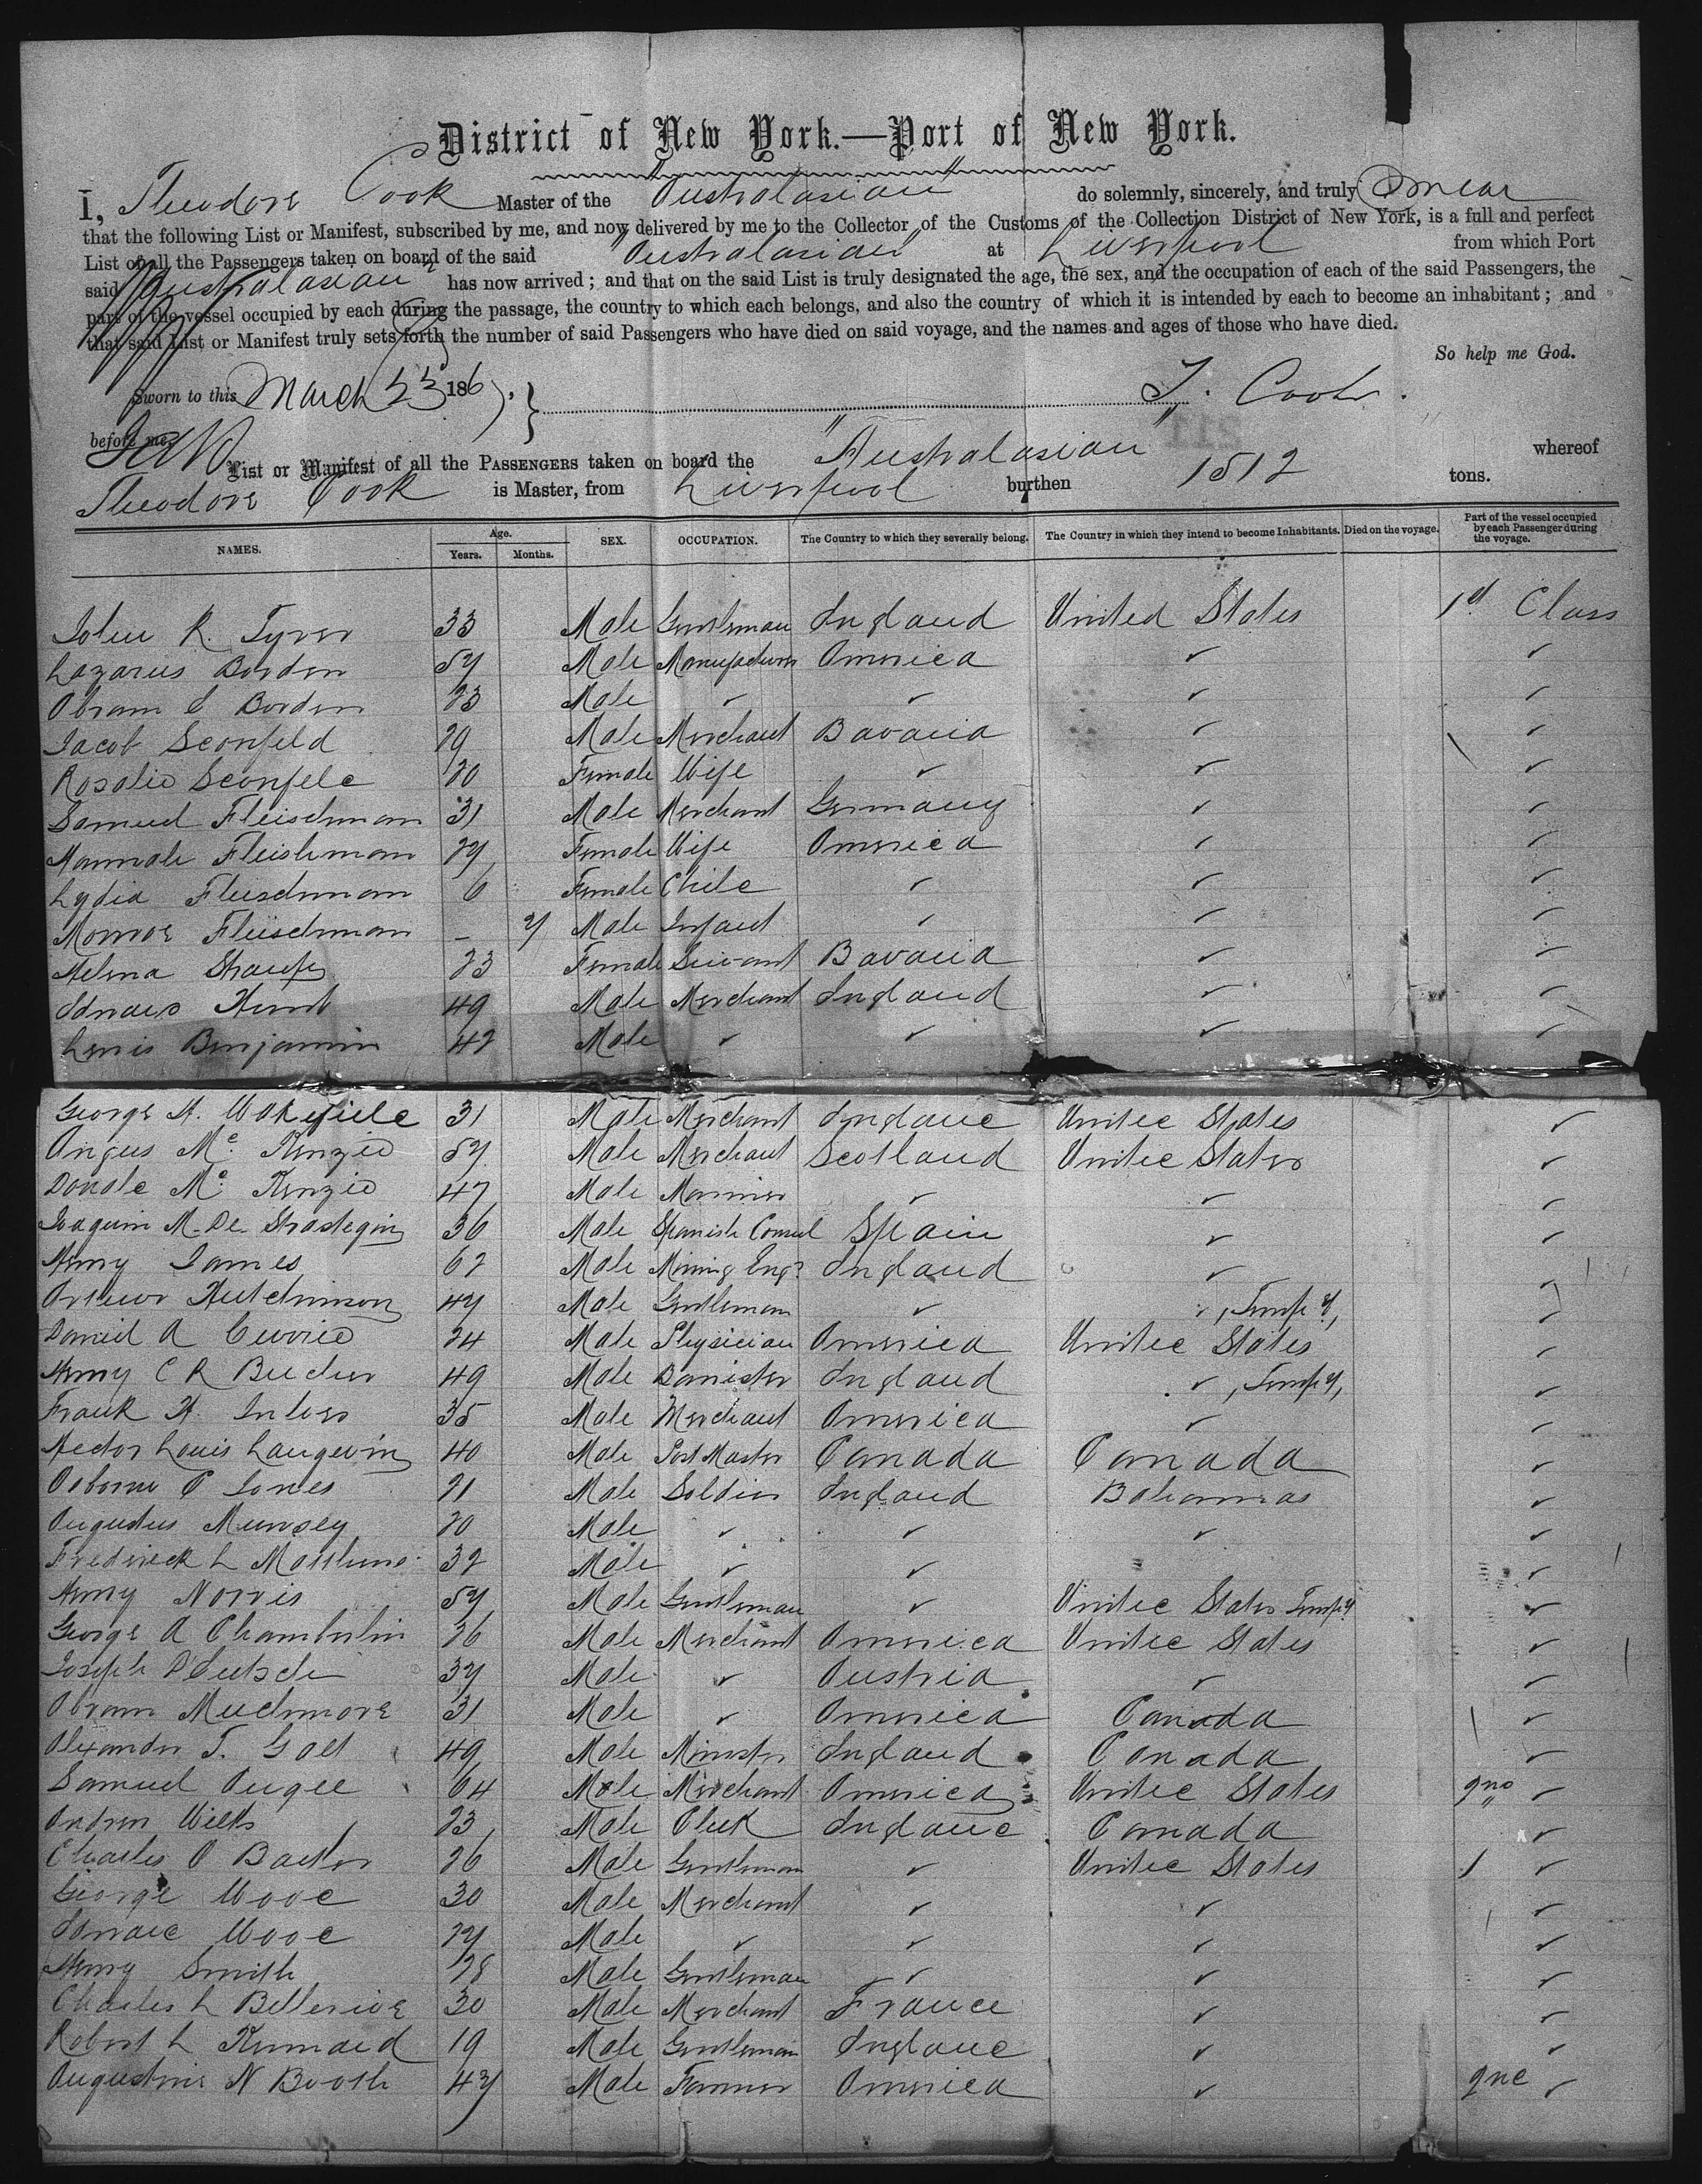 District of New York.—Port of New York.
I, Theodore Cook Master of the "Australasian" do solemnly, sincerely, and truly swear
that the following List or Manifest, subscribed by me, and now delivered by me to the Collector of the Customs of the Collection District of New York, is a full and perfect
List of all the Passengers taken on board of the said "Australasian" at Liverpool from which Port
said "Australasian" has now arrived; and that on the said List is truly designated the age, the sex, and the occupation of each of the said Passengers, the
part of the vessel occupied by each during the passage, the country to which each belongs, and also the country of which it is intended by each to become an inhabitant; and
that said List or Manifest truly sets forth the number of said Passengers who have died on said voyage, and the names and ages of those who have died.
So help me God.
Sworn to this March 23 1867. T. Cook.
before me,
List or Manifest of all the PASSENGERS taken on board the "Australasian" whereof
Theodore Cook is Master, from Liverpool burthen 1512 tons.
NAMES. Age. Years. Months. SEX. OCCUPATION. The Country to which they severally belong. The Country in which they intend to become Inhabitants. Died on the voyage. Part of the vessel occupied by each Passenger during the voyage.
John R. Tyrer 33 Male Gentleman England United States 1st Class
Lazarus Borden 57 Male Manufacturer America ✓ ✓
Abram C Borden 23 Male ✓ ✓ ✓ ✓
Jacob Sconfeld 29 Male Merchant Bavaria ✓ ✓
Rosalie Sconfeld 20 Female Wife ✓ ✓ ✓
Samuel Fleischman 31 Male Merchant Germany ✓ ✓
Hannah Fleishman 27 Female Wife America ✓ ✓
Lydia Fleischman 6 Female Child ✓ ✓ ✓
Monroe Fleischman – 7 Male Infant ✓ ✓ ✓
Helena 23 Female Servant Bavaria ✓ ✓
Edward Hunt 49 Male Merchant England ✓ ✓
Lewis Benjamin 42 Male ✓ ✓ ✓ ✓
George H. Wakefield 31 Male Merchant England United States ✓
Angus Mc. Kenzie 57 Male Merchant Scotland United States ✓
Donald Mc. Kenzie 47 Male Mariner ✓ ✓ ✓
Joaquim M. De 36 Male Spanish Consul Spain ✓ ✓
Henry James 62 Male Mining Engr England ✓ ✓
Arthur Hutchinson 47 Male Gentleman ✓ ✓, Tempy, ✓
Daniel A Currie 24 Male Physician America United States ✓
Henry C R Becher 49 Male Barrister England ✓, Tempy, ✓
Frank H. 35 Male Merchant America ✓ ✓
Hector Louis Langevin 40 Male Post Master Canada Canada ✓
Osborne C Jones 21 Male Soldier England Bahamas ✓
Augustus Munsey 20 Male ✓ ✓ ✓ ✓
Frederick L 32 Male ✓ ✓ ✓
Henry Norris 57 Male Gentleman ✓ United States Tempy ✓
George A Chamberlin 26 Male Merchant America United States ✓
Joseph Deutsch 37 Male ✓ Austria ✓ ✓
Abram Muchmore 31 Male ✓ America Canada ✓
Alexander T. Galt 49 Male Minister England Canada ✓
Samuel 64 Male Merchant America United States 2nd ✓
Andrew Wilks 23 Male Clerk England Canada ✓
Charles O Baxter 26 Male Gentleman ✓ United States 1 ✓
George Wood 30 Male Merchant ✓ ✓ ✓
Edward Wood 27 Male ✓ ✓ ✓ ✓
Henry Smith 28 Male Gentleman ✓ ✓ ✓
Charles L Bellerive 30 Male Merchant France ✓ ✓
Robert L Kinnaird 19 Male Gentleman England ✓ ✓
Augustine N Booth 47 Male Farmer America ✓ 2nd ✓